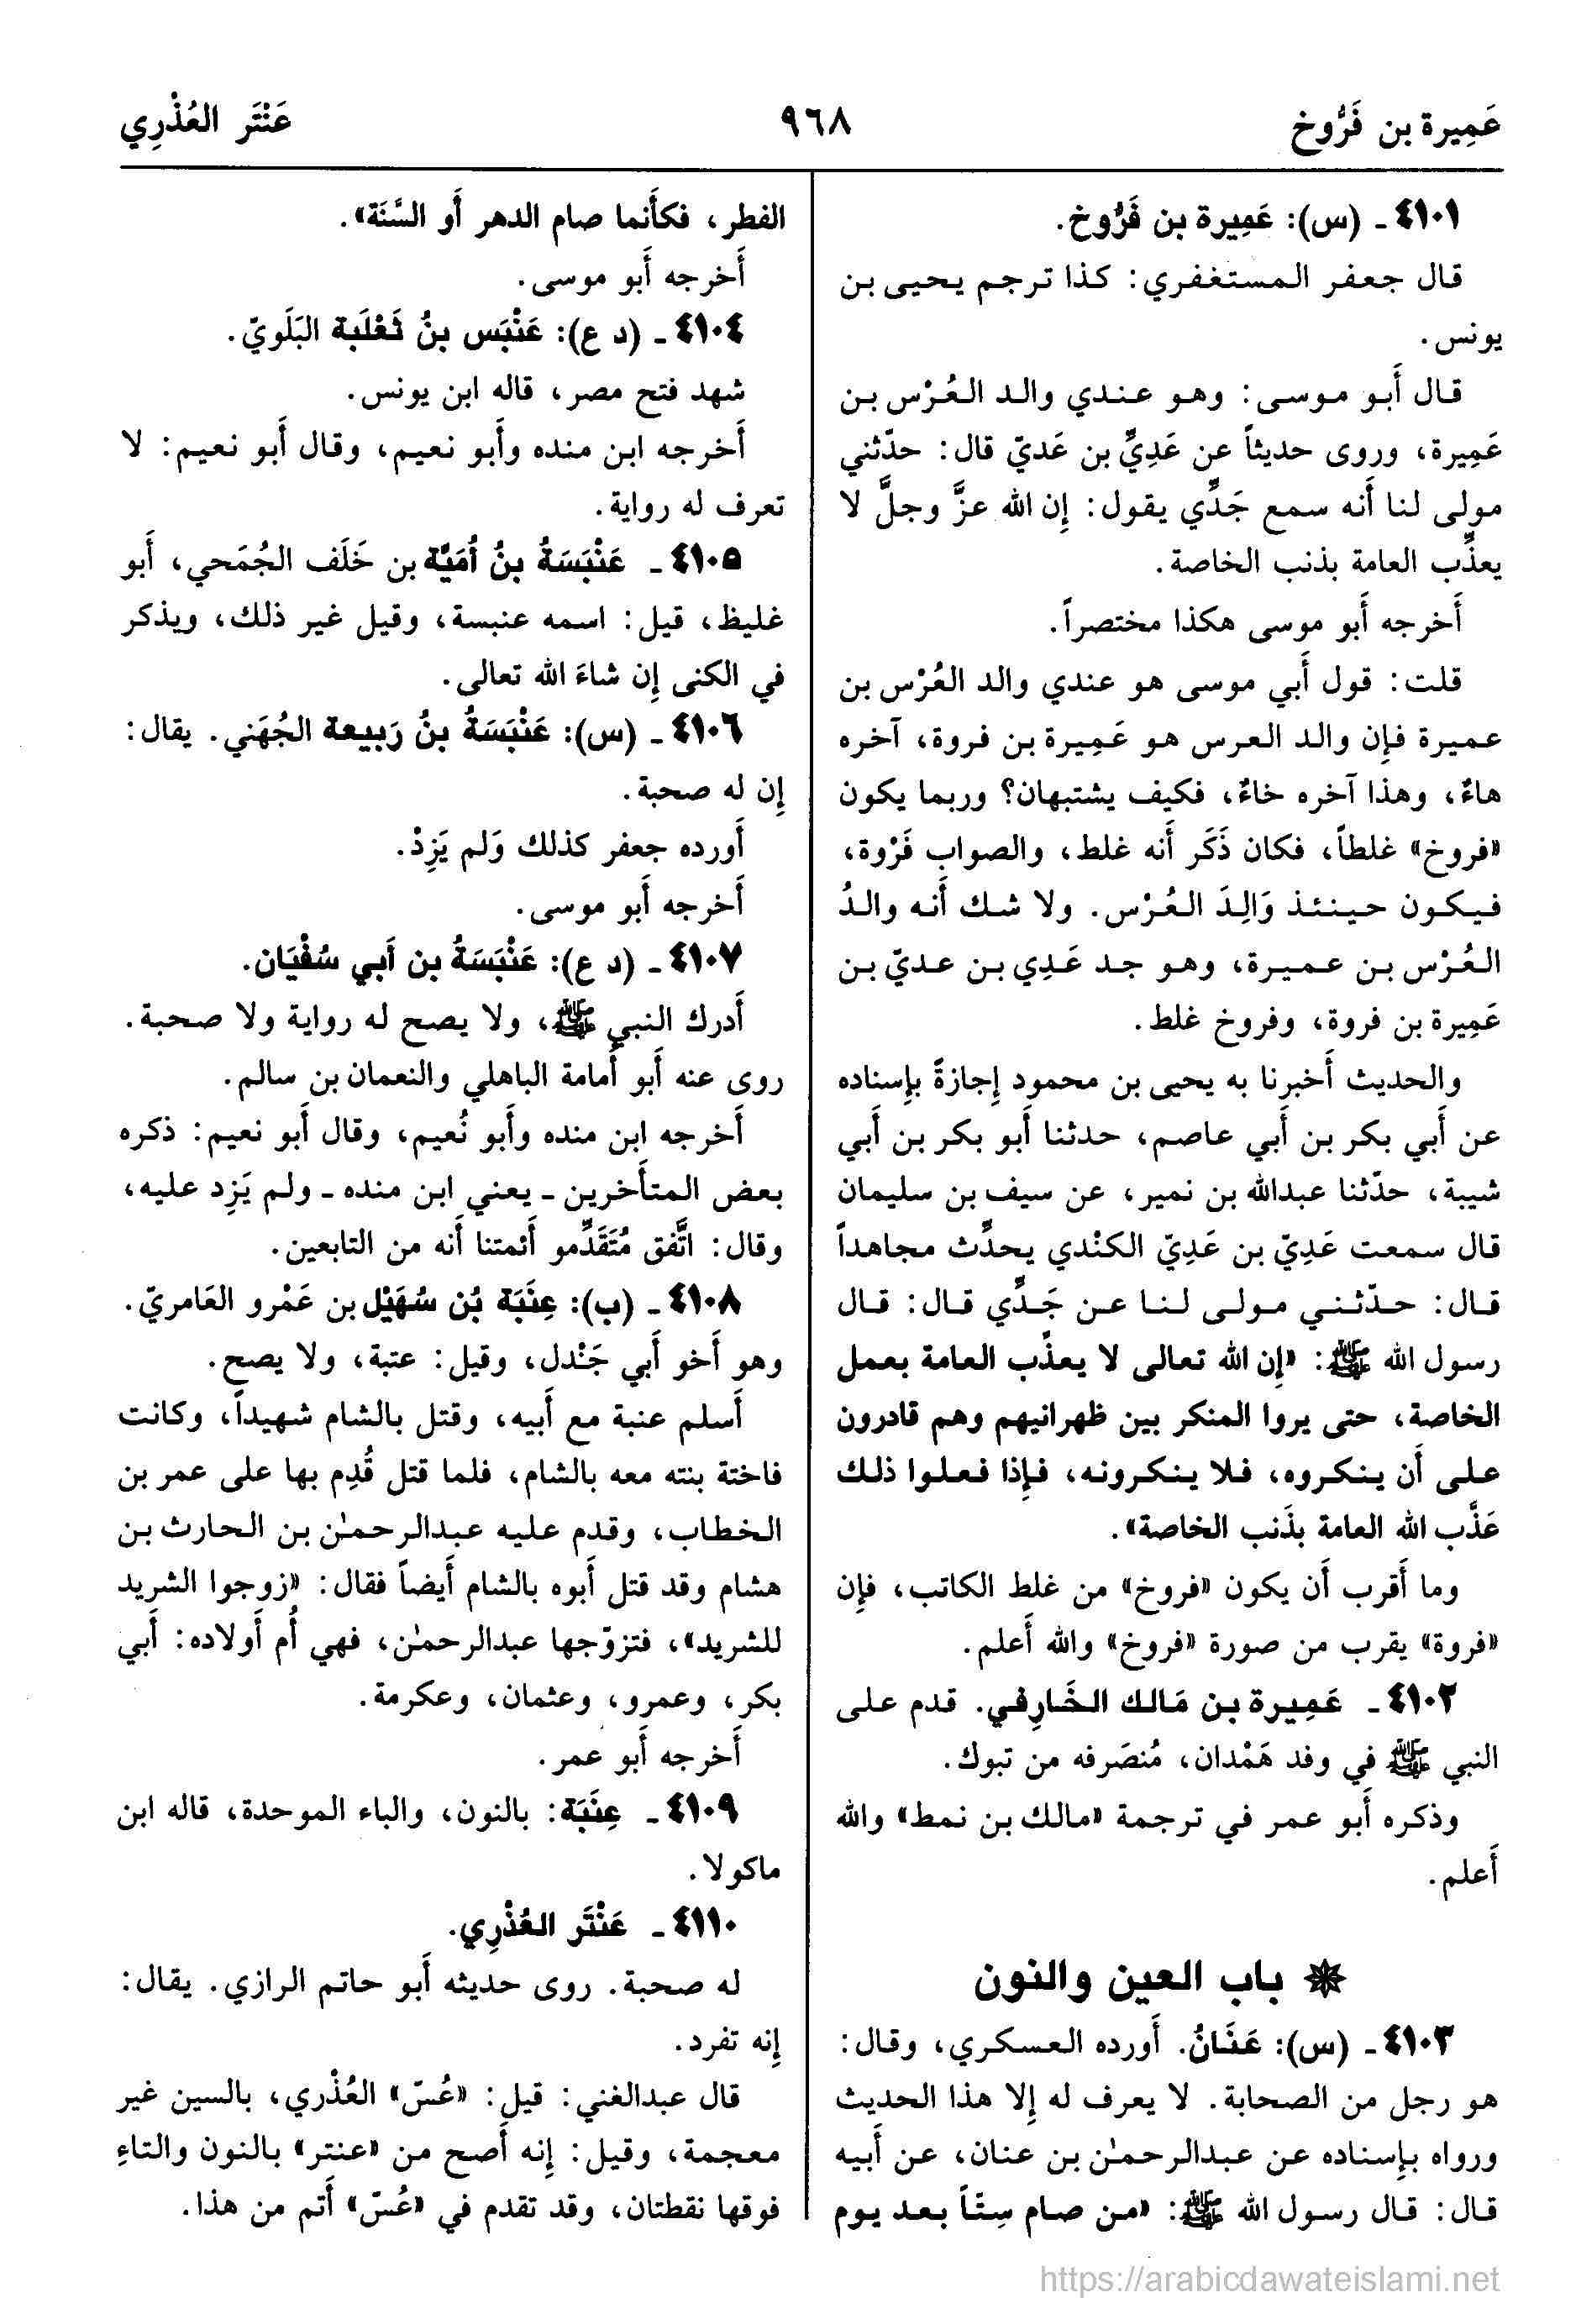 عَمِيرة بن فَرُّوخ
٩٦٨
عَنْتَر العُذْرِي
٤١٠١ ـ (س): عَمِيرة بن فَرُّوخ.
قال جعفر المستغفري: كذا ترجم يحيى بن
يونس.
قال أَبو موسى: وهو عندي والد العُرْس بن
عَمِيرة، وروى حديثاً عن عَدِيِّ بن عَديّ قال: حدّثني
مولى لنا أَنه سمع جَدِّي يقول: إِن الله عزَّ وجلَّ لا
يعذِّب العامة بذنب الخاصة.
أَخرجه أَبو موسى هكذا مختصراً.
قلت: قول أَبي موسى هو عندي والد العُرْس بن
عميرة فإِن والد العرس هو عَمِيرة بن فروة، آخره
هاءٌ، وهذا آخره خاءٌ، فكيف يشتبهان؟ وربما يكون
«فروخ» غلطاً، فكان ذَكَر أَنه غلط، والصواب فَرْوة،
فيكون حينئذ وَالِدَ العُرْس. ولا شك أَنه والدُ
العُرْس بن عميرة، وهو جد عَدِي بن عديّ بن
عَمِيرة بن فروة، وفروخ غلط.
والحديث أَخبرنا به يحيى بن محمود إِجازةً بإِسناده
عن أَبي بكر بن أَبي عاصم، حدثنا أَبو بكر بن أَبي
شيبة، حدّثنا عبدالله بن نمير، عن سيف بن سليمان
قال سمعت عَدِيّ بن عَدِيّ الكنْدي يحدِّث مجاهداً
قال: حدّثني مولى لنا عن جَدِّي قال: قال
رسول الله ﷺ: «إِن الله تعالى لا يعذِّب العامة بعمل
الخاصة، حتى يروا المنكر بين ظهرانيهم وهم قادرون
على أَن ينكروه، فلا ينكرونه، فإِذا فعلوا ذلك
عَذَّب الله العامة بذَنب الخاصة».
وما أَقرب أَن يكون «فروخ» من غلط الكاتب، فإِن
«فروة» يقرب من صورة «فروخ» والله أَعلم.
٤١٠٢ ـ عَمِيرة بن مَالك الخَارِفي. قدم على
النبي ﷺ في وفد هَمْدان، مُنصَرفه من تبوك.
وذكره أَبو عمر في ترجمة «مالك بن نمط» والله
أَعلم.
باب العين والنون
٤١٠٣ ـ (س): عَنَانُ. أَورده العسكري، وقال:
هو رجل من الصحابة. لا يعرف له إِلا هذا الحديث
ورواه بإِسناده عن عبدالرحمٰن بن عنان، عن أَبيه
قال: قال رسول الله ﷺ: «من صام سِتّاً بعد يوم
الفطر، فكأَنما صام الدهر أَو السَّنَة».
أَخرجه أَبو موسى.
٤١٠٤ ـ (د ع): عَنْبَس بنُ ثَعْلَبة البَلَويّ.
شهد فتح مصر، قاله ابن يونس.
أَخرجه ابن منده وأَبو نعيم، وقال أَبو نعيم: لا
تعرف له رواية.
٤١٠٥ ـ عَنْبَسَةُ بنُ أُمَيَّة بن خَلَف الجُمَحي، أَبو
غليظ، قيل: اسمه عنبسة، وقيل غير ذلك، ويذكر
في الكنى إِن شاءَ الله تعالى.
٤١٠٦ ـ (س): عَنْبَسَةُ بنُ رَبيعة الجُهَني. يقال:
إِن له صحبة.
أَورده جعفر كذلك وَلم يَزِدْ.
أَخرجه أَبو موسى.
٤١٠٧ ـ (د ع): عَنْبَسَةُ بن أَبي سُفْيَان.
أَدرك النبي ﷺ، ولا يصح له رواية ولا صحبة.
روى عنه أَبو أُمامة الباهلي والنعمان بن سالم.
أَخرجه ابن منده وأَبو نُعيم، وقال أَبو نعيم: ذكره
بعض المتأَخرين ـ يعني ابن منده ـ ولم يَزِد عليه،
وقال: اتَّفق مُتَقَدِّمو أَئمتنا أَنه من التابعين.
٤١٠٨ ـ (ب): عِنَبَة بُن سُهَيْل بن عَمْرو العَامريّ.
وهو أَخو أَبي جَنْدل، وقيل: عتبة، ولا يصح.
أَسلم عنبة مع أَبيه، وقتل بالشام شهيداً، وكانت
فاختة بنته معه بالشام، فلما قتل قُدِم بها على عمر بن
الخطاب، وقدم عليه عبدالرحمٰن بن الحارث بن
هشام وقد قتل أَبوه بالشام أَيضاً فقال: «زوجوا الشريد
للشريد»، فتزوّجها عبدالرحمٰن، فهي أُم أَولاده: أَبي
بكر، وعمرو، وعثمان، وعكرمة.
أَخرجه أَبو عمر.
٤١٠٩ ـ عِنَبَة: بالنون، والباء الموحدة، قاله ابن
ماكولا.
٤١١٠ ـ عَنْتَر العُذْرِي.
له صحبة. روى حديثه أَبو حاتم الرازي. يقال:
إِنه تفرد.
قال عبدالغني: قيل: «عُسّ» العُذْري، بالسين غير
معجمة، وقيل: إِنه أَصح من «عنتر» بالنون والتاءِ
فوقها نقطتان، وقد تقدم في «عُسّ» أَتم من هذا.
https://arabicdawateislami.net